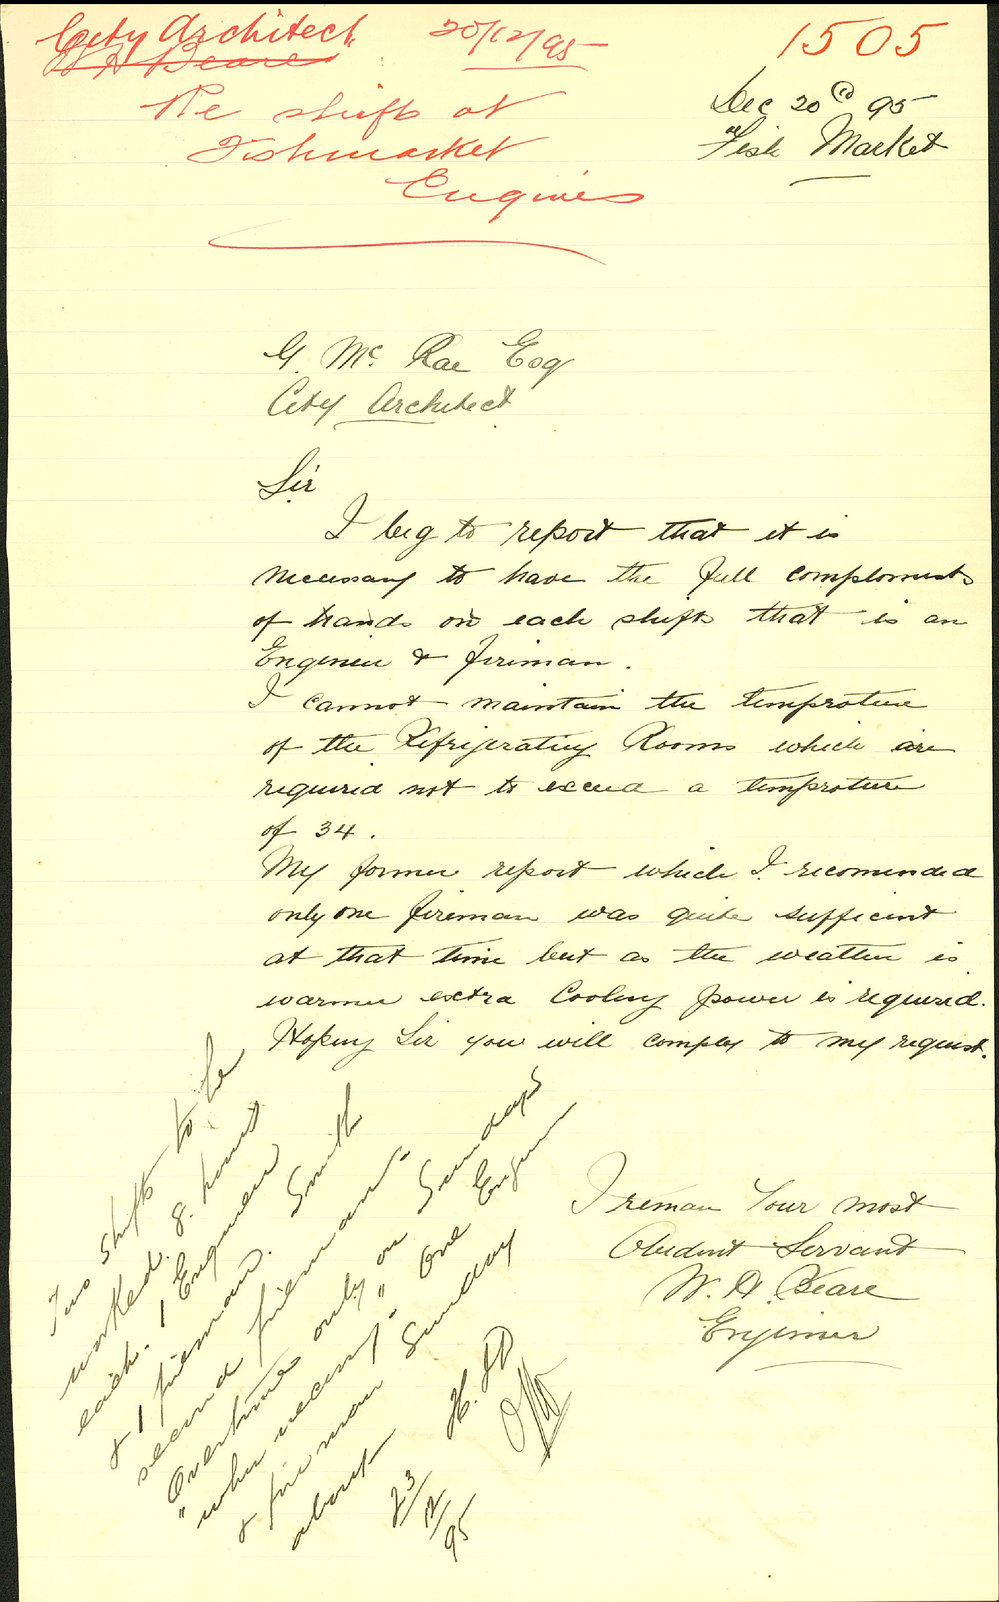 City Architect
W H Beare
20/12/95
1505
Re shifts at
Fishmarket
Engines
Dec 20th 95
Fish Market
G. Mc. Rae Esq
City Architect
Sir
I beg to report that it is
necessary to have the full complements
of hands on each shifts that is an
Engineer & fireman.
I cannot maintain the temprature
of the Refrigerating Rooms which are
required not to exceed a temprature
of 34.
My former report which I recomended
only one fireman was quite sufficent
at that time but as the weather is
warmer extra Cooling power is required.
Hoping Sir you will comply to my request.
I reman Your most
Obedient Servant
W. H. Beare
Engineer
Two shifts to be
worked. 8. hours
each. 1 Engineer
& 1 fireman. Smith
second fireman.
Overtime only on Sundays
"when necessy" One Engineer
& fireman Sunday
about
H.
23/12/95